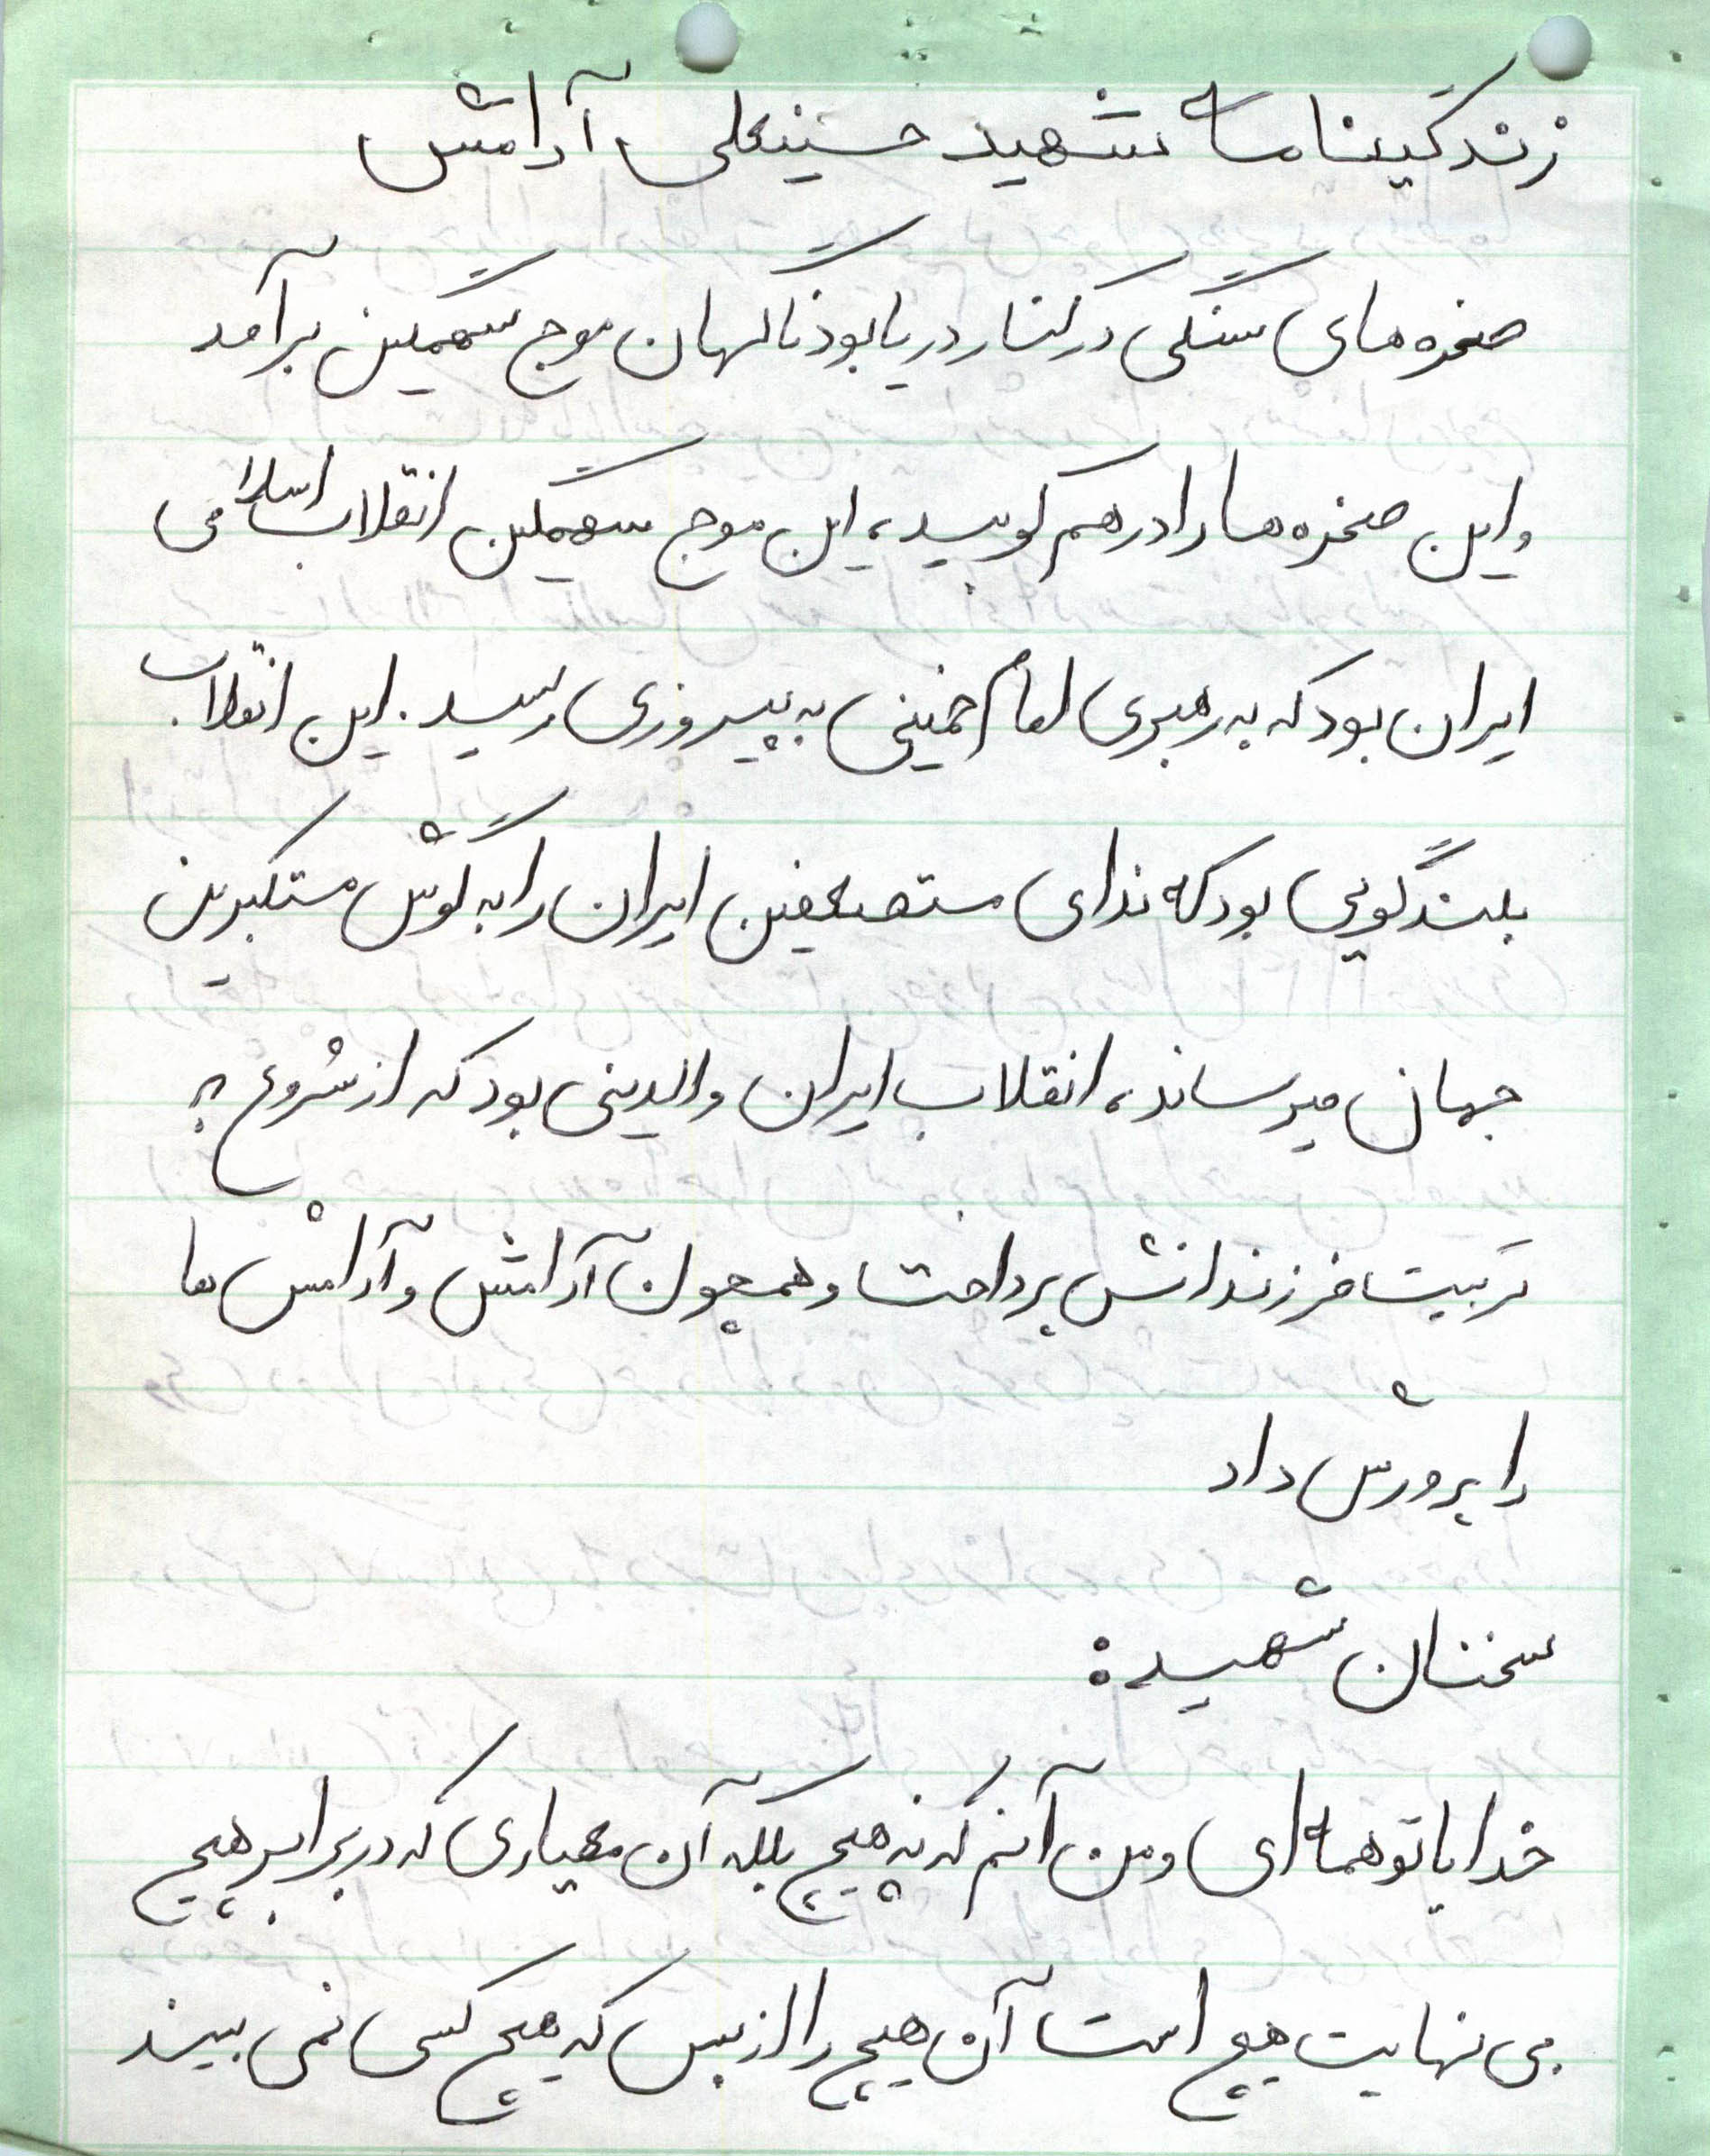 زندگینامه شهید حسینعلی آرامش
صخره های سنگی در کنار دریا بود ناگهان موج سهمگین برآمد
و این صخره ها را درهم کوبید، این موج سهمگین انقلاب اسلامی
ایران بود که به رهبری امام خمینی به پیروزی رسید. این انقلاب
بلندگویی بود که ندای مستضعفین ایران را به گوش مستکبرین
جهان میرساند، انقلاب ایران والدینی بود که از شروع به
تربیت فرزندانش پرداخت و همچون آرامش و آرامش ها
را پرورش داد
سخنان شهید:
خدایا تو همه ای و من آنم که نه هیچ بلکه آن معیاری که در برابر هیچ
بی نهایت هیچ است آن هیچ را از بس که هیچ کسی نمی بیند